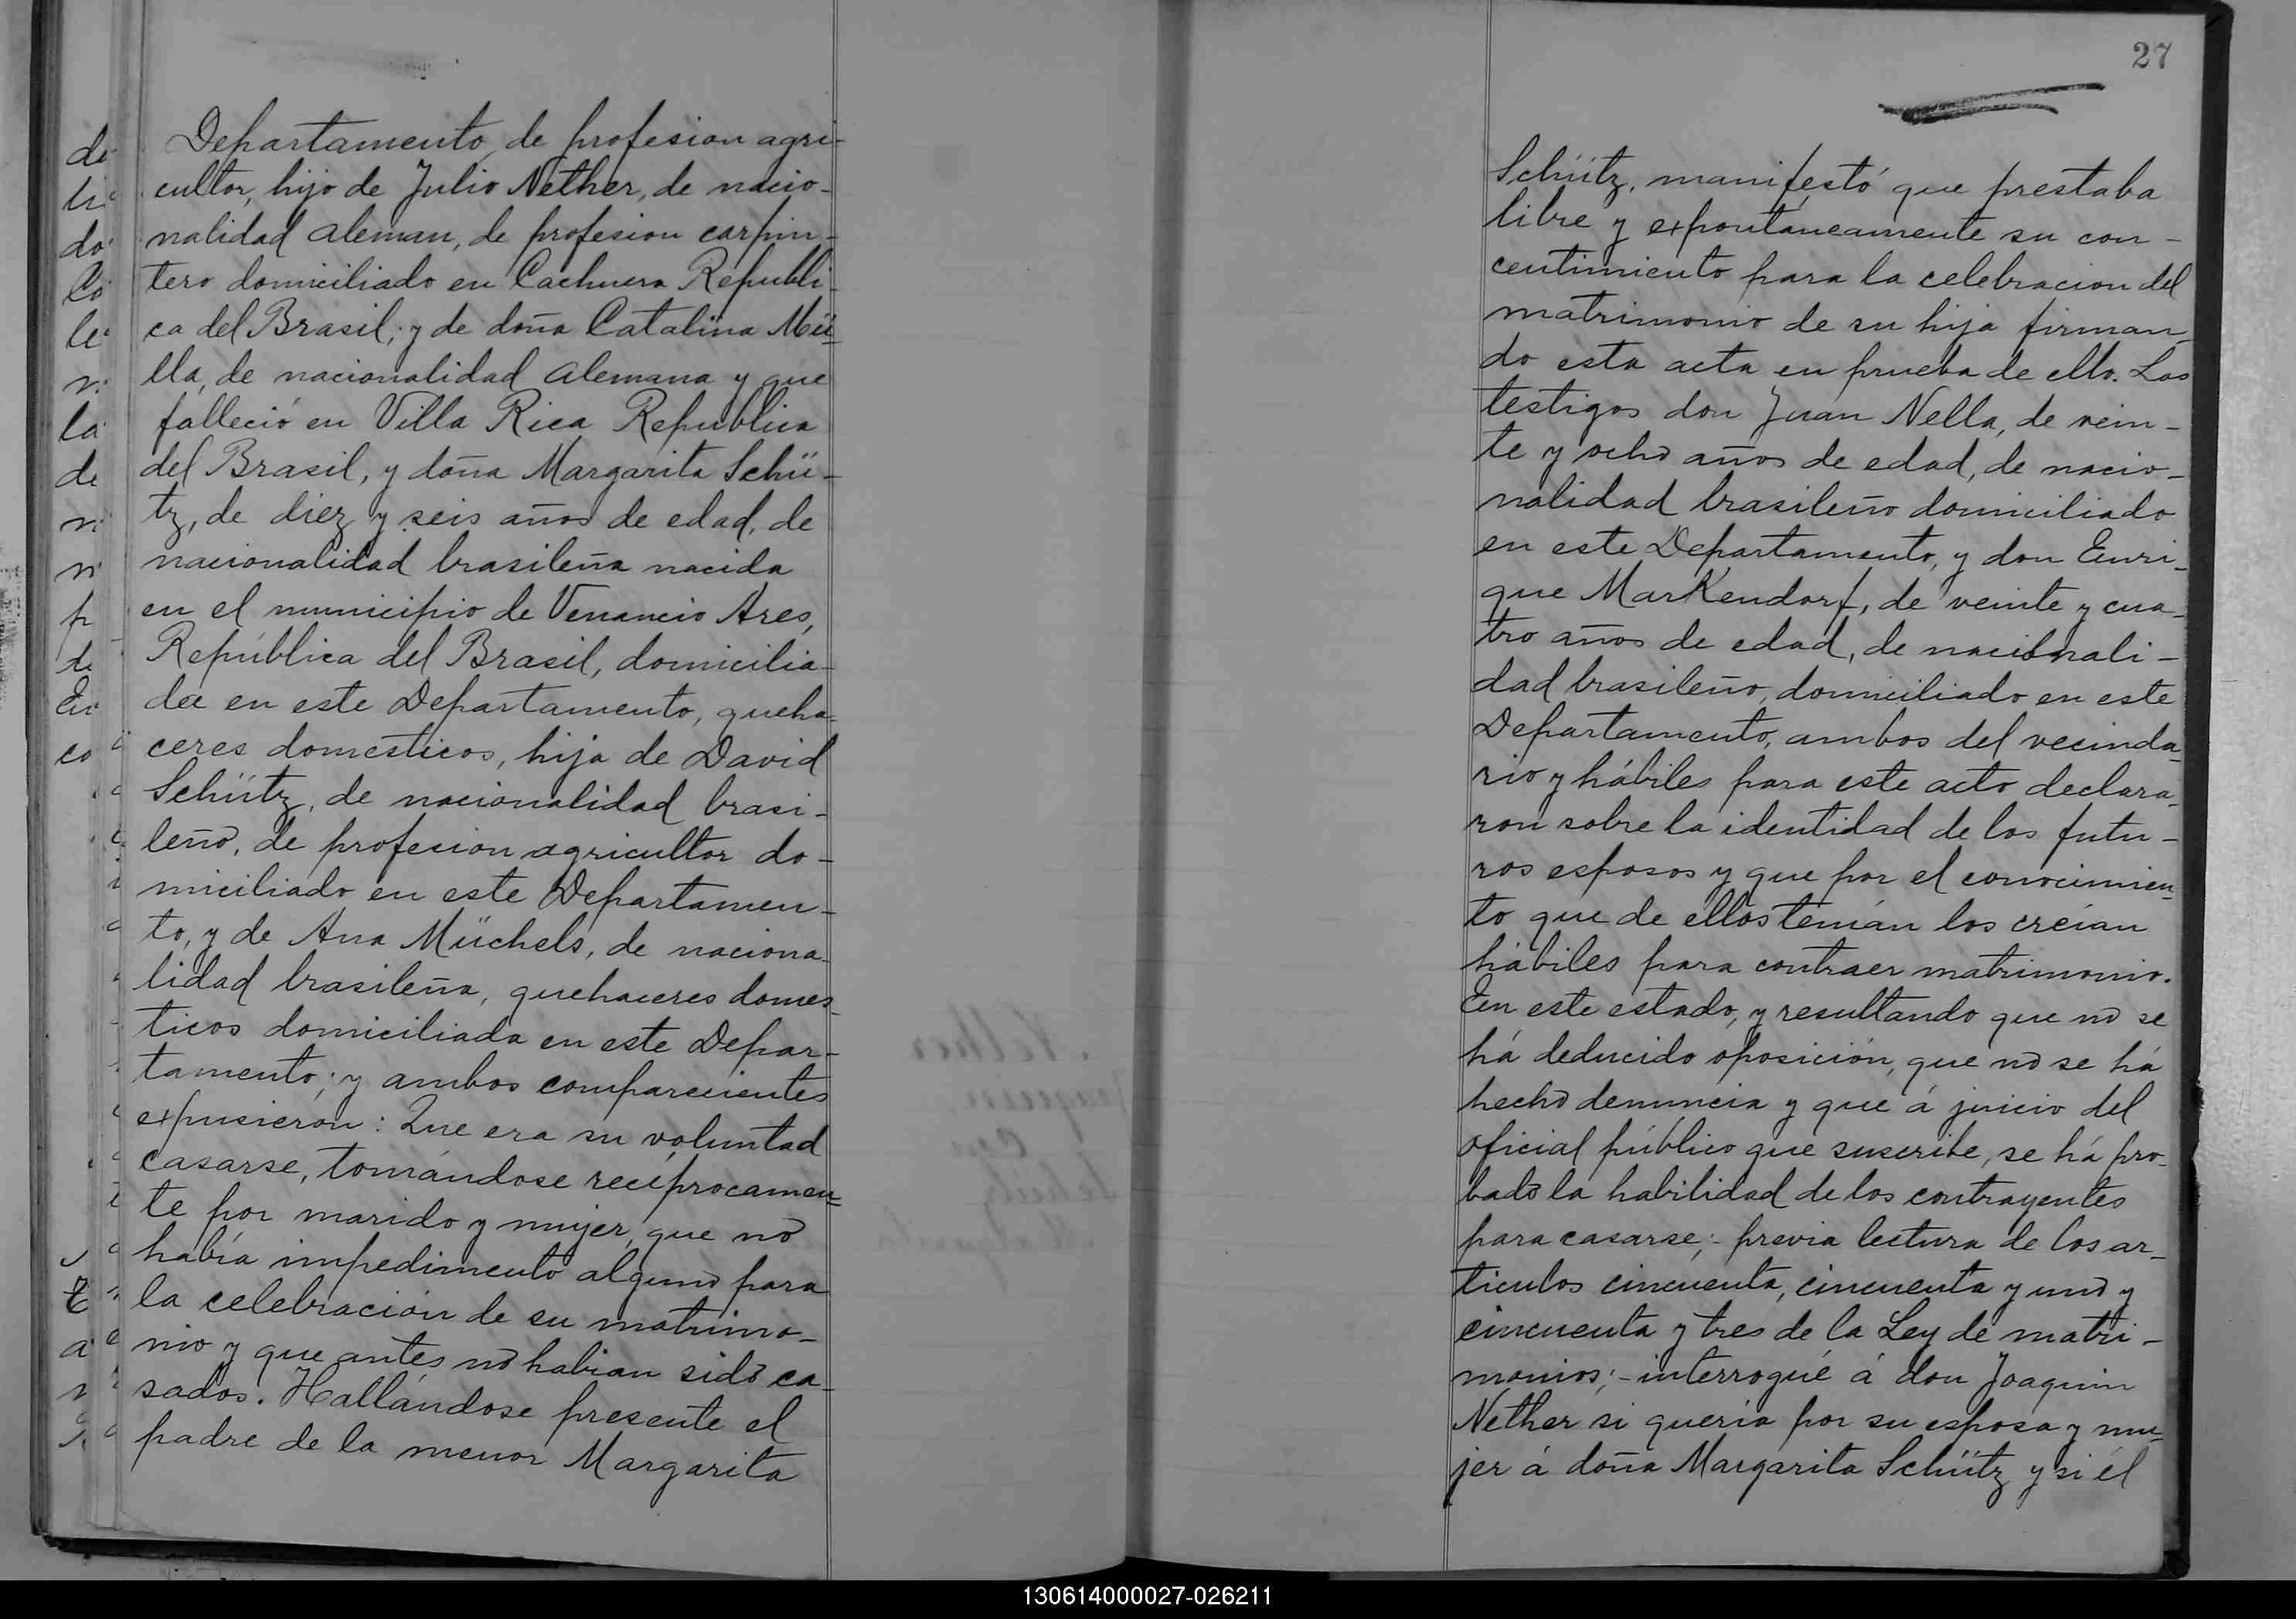 Departamento, de profesion agri-
cultor, hijo de Julio Nether, de nacio-
nalidad aleman, de profesion carpin-
tero domiciliado en Cachuera Republi-
ca del Brasil; y de doña Catalina Mü-
lla, de nacionalidad alemana y que
falleció en Villa Rica Republica
del Brasil, y doña Margarita Schü-
tz, de diez y seis años de edad, de
nacionalidad brasileña nacida
en el municipio de Venancio Ares,
República del Brasil, domicilia-
da en este Departamento, queha-
ceres domesticos, hija de David
Schütz, de nacionalidad brasi-
leño, de profesion agricultor do-
miciliado en este Departamen-
to, y de Ana Müchels, de naciona-
lidad brasileña, quehaceres domes-
ticos domiciliada en este Depar-
tamento; y ambos comparecientes
expusieron: Que era su voluntad
casarse, tomándose recíprocamen-
te por marido y mujer, que no
había impedimento alguno para
la celebración de su matrimo-
nio y que antes no habian sido ca-
sados. Hallándose presente el
padre de la menor Margarita
27
Schütz, manifestó que prestaba
libre y expontáneamente su con-
centimiento para la celebracion del
matrimonio de su hija firman-
do esta acta en prueba de ello. Los
testigos don Juan Nella, de vein-
te y ocho años de edad, de nacio-
nalidad brasileño domiciliado
en este Departamento, y don Enri-
que Markendorf, de veinte y cua-
tro años de edad, de nacionali-
dad brasileño, domiciliado en este
Departamento, ambos del vecinda-
rio y hábiles para este acto declara-
ron sobre la identidad de los futu-
ros esposos y que por el conocimien-
to que de ellos tenían los creían
hábiles para contraer matrimonio.
En este estado, y resultando que no se
há deducido oposición, que no se há
hecho denuncia y que á juicio del
oficial público que suscribe, se há pro-
bado la habilidad de los contrayentes
para casarse;- previa lectura de los ar-
ticulos cincuenta, cincuenta y uno y
cincuenta y tres de la Ley de matri-
monios;- interrogué á don Joaquin
Nether si queria por su esposa y mu-
jer á doña Margarita Schütz y si él
130614000027-026211